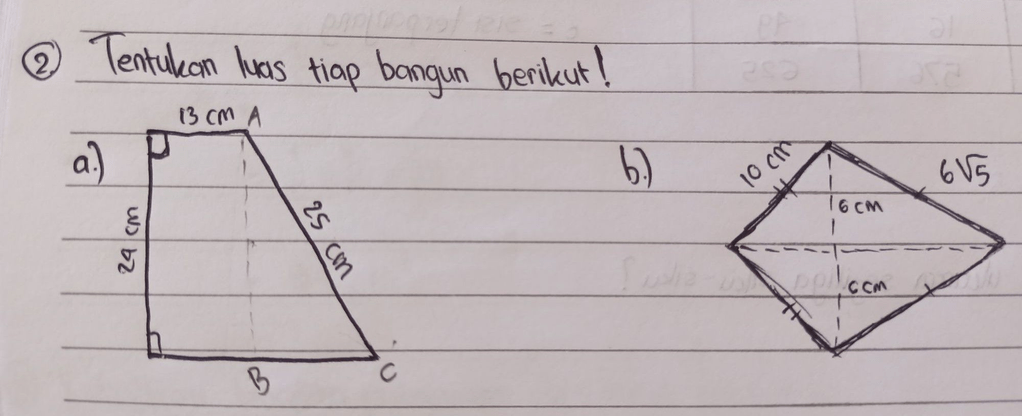 ② Tentukan luas tiap bangun berikut!
13 cm A
a.)
24 cm
25 cm
B
C
b.)
10 cm
6√5
6 cm
6 cm